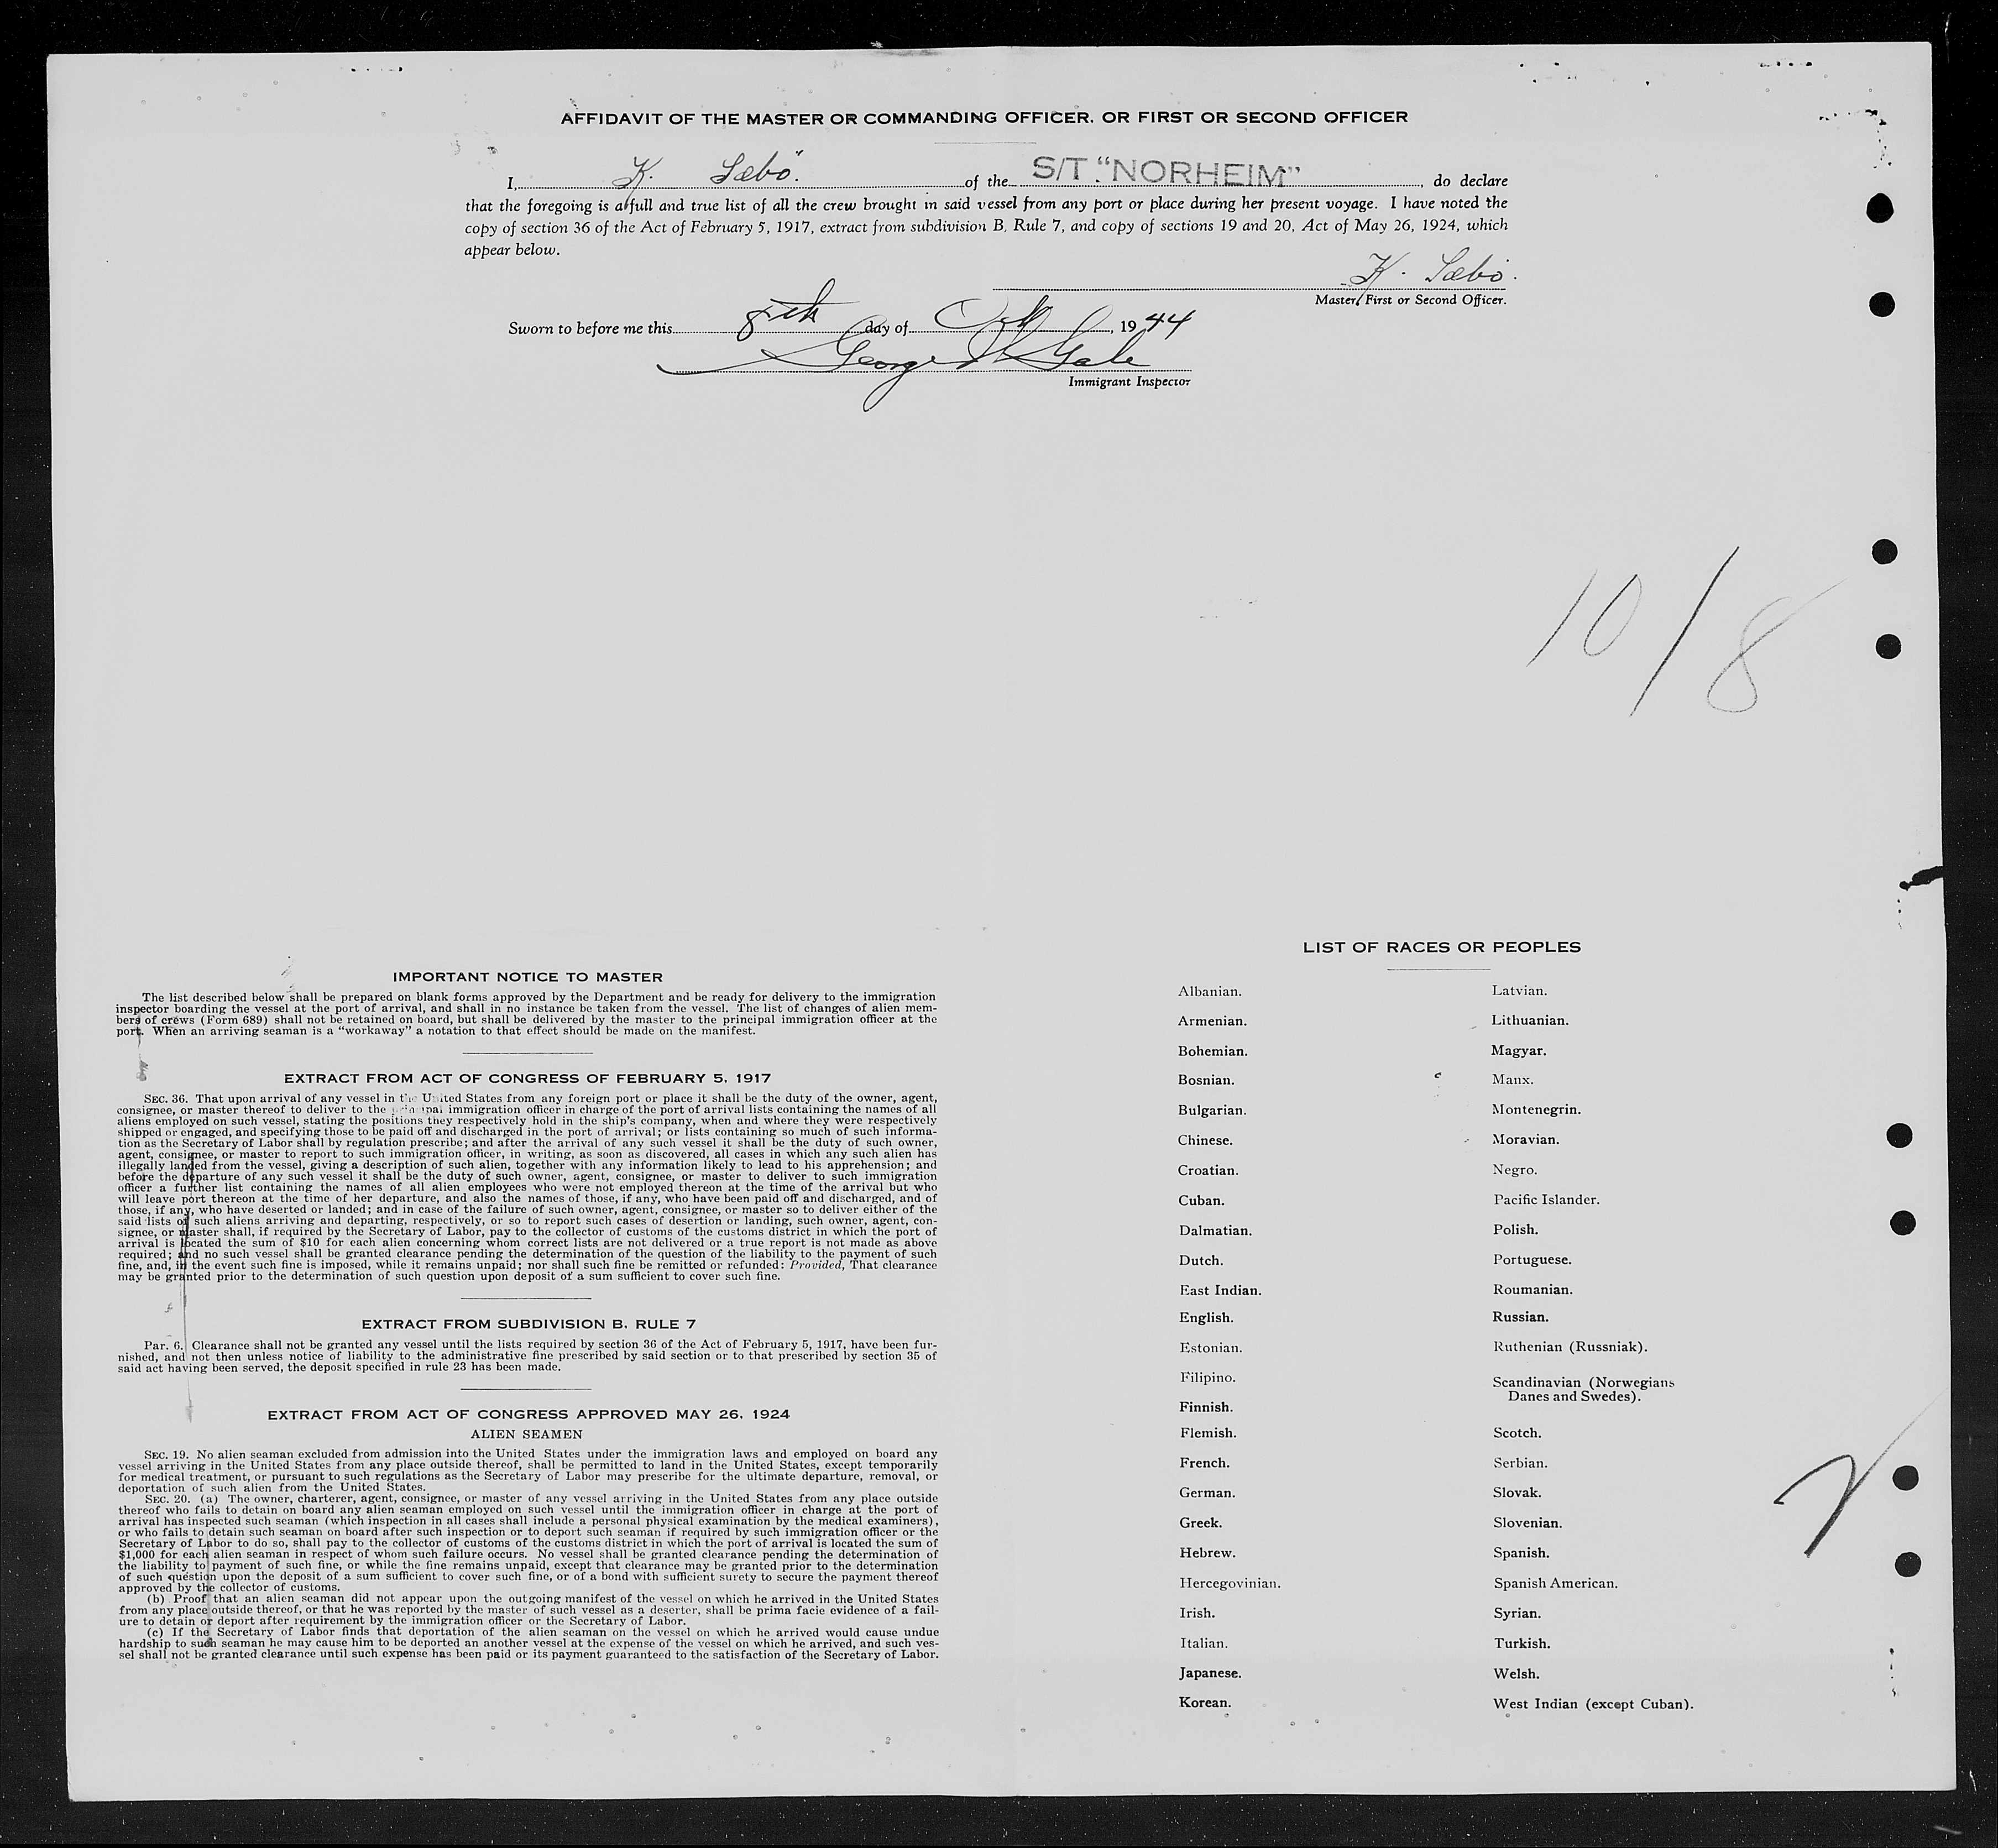 AFFIDAVIT OF THE MASTER OR COMMANDING OFFICER, OR FIRST OR SECOND OFFICER
I, K. Sæbö. of the S/T. "NORHEIM", do declare
that the foregoing is a full and true list of all the crew brought in said vessel from any port or place during her present voyage. I have noted the
copy of section 36 of the Act of February 5, 1917, extract from subdivision B, Rule 7, and copy of sections 19 and 20, Act of May 26, 1924, which
appear below.
K. Sæbö.
Master, First or Second Officer.
Sworn to before me this 8th day of Oct, 1944
George W Gale
Immigrant Inspector
10/8
IMPORTANT NOTICE TO MASTER
The list described below shall be prepared on blank forms approved by the Department and be ready for delivery to the immigration
inspector boarding the vessel at the port of arrival, and shall in no instance be taken from the vessel. The list of changes of alien mem-
bers of crews (Form 689) shall not be retained on board, but shall be delivered by the master to the principal immigration officer at the
port. When an arriving seaman is a "workaway" a notation to that effect should be made on the manifest.
EXTRACT FROM ACT OF CONGRESS OF FEBRUARY 5, 1917
SEC. 36. That upon arrival of any vessel in the United States from any foreign port or place it shall be the duty of the owner, agent,
consignee, or master thereof to deliver to the principal immigration officer in charge of the port of arrival lists containing the names of all
aliens employed on such vessel, stating the positions they respectively hold in the ship's company, when and where they were respectively
shipped or engaged, and specifying those to be paid off and discharged in the port of arrival; or lists containing so much of such informa-
tion as the Secretary of Labor shall by regulation prescribe; and after the arrival of any such vessel it shall be the duty of such owner,
agent, consignee, or master to report to such immigration officer, in writing, as soon as discovered, all cases in which any such alien has
illegally landed from the vessel, giving a description of such alien, together with any information likely to lead to his apprehension; and
before the departure of any such vessel it shall be the duty of such owner, agent, consignee, or master to deliver to such immigration
officer a further list containing the names of all alien employees who were not employed thereon at the time of the arrival but who
will leave port thereon at the time of her departure, and also the names of those, if any, who have been paid off and discharged, and of
those, if any, who have deserted or landed; and in case of the failure of such owner, agent, consignee, or master so to deliver either of the
said lists of such aliens arriving and departing, respectively, or so to report such cases of desertion or landing, such owner, agent, con-
signee, or master shall, if required by the Secretary of Labor, pay to the collector of customs of the customs district in which the port of
arrival is located the sum of $10 for each alien concerning whom correct lists are not delivered or a true report is not made as above
required; and no such vessel shall be granted clearance pending the determination of the question of the liability to the payment of such
fine, and, in the event such fine is imposed, while it remains unpaid; nor shall such fine be remitted or refunded: Provided, That clearance
may be granted prior to the determination of such question upon deposit of a sum sufficient to cover such fine.
EXTRACT FROM SUBDIVISION B, RULE 7
Par. 6. Clearance shall not be granted any vessel until the lists required by section 36 of the Act of February 5, 1917, have been fur-
nished, and not then unless notice of liability to the administrative fine prescribed by said section or to that prescribed by section 35 of
said act having been served, the deposit specified in rule 23 has been made.
EXTRACT FROM ACT OF CONGRESS APPROVED MAY 26, 1924
ALIEN SEAMEN
SEC. 19. No alien seaman excluded from admission into the United States under the immigration laws and employed on board any
vessel arriving in the United States from any place outside thereof, shall be permitted to land in the United States, except temporarily
for medical treatment, or pursuant to such regulations as the Secretary of Labor may prescribe for the ultimate departure, removal, or
deportation of such alien from the United States.
SEC. 20. (a) The owner, charterer, agent, consignee, or master of any vessel arriving in the United States from any place outside
thereof who fails to detain on board any alien seaman employed on such vessel until the immigration officer in charge at the port of
arrival has inspected such seaman (which inspection in all cases shall include a personal physical examination by the medical examiners),
or who fails to detain such seaman on board after such inspection or to deport such seaman if required by such immigration officer or the
Secretary of Labor to do so, shall pay to the collector of customs of the customs district in which the port of arrival is located the sum of
$1,000 for each alien seaman in respect of whom such failure occurs. No vessel shall be granted clearance pending the determination of
the liability to payment of such fine, or while the fine remains unpaid, except that clearance may be granted prior to the determination
of such question upon the deposit of a sum sufficient to cover such fine, or of a bond with sufficient surety to secure the payment thereof
approved by the collector of customs.
(b) Proof that an alien seaman did not appear upon the outgoing manifest of the vessel on which he arrived in the United States
from any place outside thereof, or that he was reported by the master of such vessel as a deserter, shall be prima facie evidence of a fail-
ure to detain or deport after requirement by the immigration officer or the Secretary of Labor.
(c) If the Secretary of Labor finds that deportation of the alien seaman on the vessel on which he arrived would cause undue
hardship to such seaman he may cause him to be deported an another vessel at the expense of the vessel on which he arrived, and such ves-
sel shall not be granted clearance until such expense has been paid or its payment guaranteed to the satisfaction of the Secretary of Labor.
LIST OF RACES OR PEOPLES
Albanian.
Armenian.
Bohemian.
Bosnian.
Bulgarian.
Chinese.
Croatian.
Cuban.
Dalmatian.
Dutch.
East Indian.
English.
Estonian.
Filipino.
Finnish.
Flemish.
French.
German.
Greek.
Hebrew.
Hercegovinian.
Irish.
Italian.
Japanese.
Korean.
Latvian.
Lithuanian.
Magyar.
Manx.
Montenegrin.
Moravian.
Negro.
Pacific Islander.
Polish.
Portuguese.
Roumanian.
Russian.
Ruthenian (Russniak).
Scandinavian (Norwegians
Danes and Swedes).
Scotch.
Serbian.
Slovak.
Slovenian.
Spanish.
Spanish American.
Syrian.
Turkish.
Welsh.
West Indian (except Cuban).